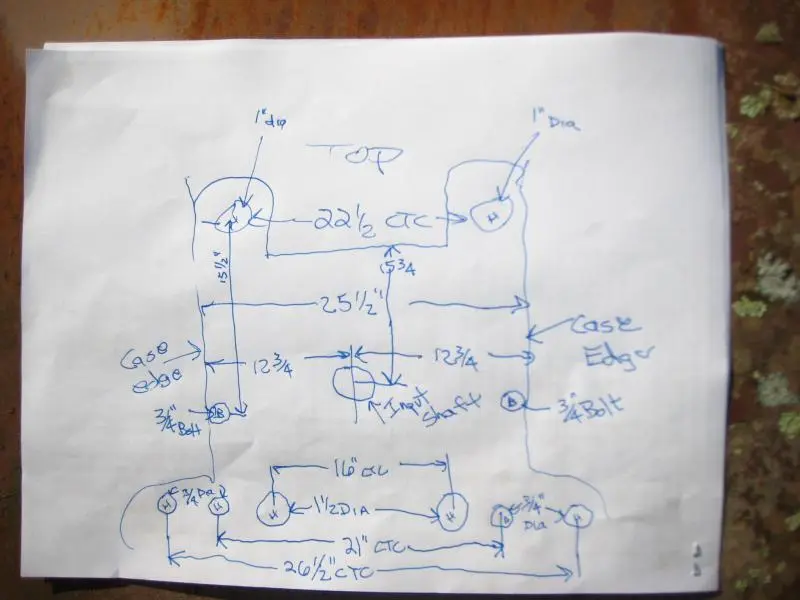 1" dia
1" Dia
TOP
H
22 1/2 CTC
H
15 1/2"
15 3/4
25 1/2"
Case
edge
12 3/4
12 3/4
Case
Edge
3/4"
Bolt
B
Input
Shaft
B
3/4 Bolt
16" CTC
H
3/4 Dia
H
H
1 1/2 DIA
H
H
3/4"
Dia
H
21" CTC
26 1/2" CTC